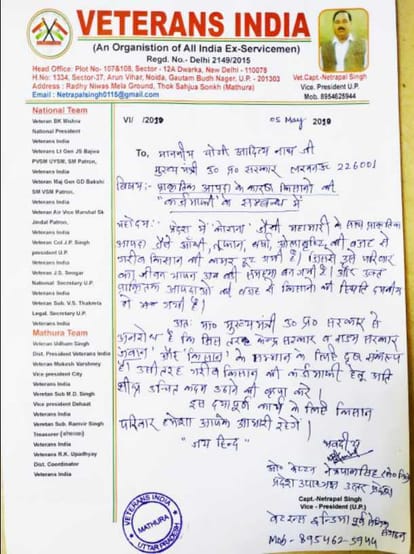 VETERANS INDIA
(An Organistion of All India Ex-Servicemen)
Regd. No.- Delhi 2149/2015
Head Office: Plot No- 107&108, Sector - 12A Dwarka, New Delhi - 110078
H.No: 1334, Sector-37, Arun Vihar, Noida, Gautam Budh Nager, U.P. - 201303
Address : Radhy Niwas Mela Ground, Thok Sahjua Sonkh (Mathura)
Email : Netrapalsingh0115@gmail.com
Vet.Capt.-Netrapal Singh
Vice President U.P.
Mob. 8954625944
National Team
Veteran BK Mishra
National President
Veterans India
Veterans Lt Gen JS Bajwa
PVSM UYSM, SM Patron,
Veterans India
Veteran Maj Gen GD Bakshi
SM VSM Patron,
Veterans India
Veteran Air Vice Marshal Sk
Jindal Patron,
Veterans India
Veteran Col J.P. Singh
president U.P.
Veterans India
Veteran J.S. Nongar
National Secretary U.P.
Veterans India
Veteran Sub. V.S. Thakrela
Legal. Secretary U.P.
Veterans India
Mathura Team
Veteran Vidham Singh
Dist. President Veterans India
Veteran Mukesh Varshney
Vice president City
Veterans India
Veretan Sub M.D. Singh
Vice president Dehaat
Veterans India
Veretan Sub. Ramvir Singh
Treasurer (कोषाध्यक्ष)
Veterans India
Veterans R.K. Upadhyay
Dist. Coordinator
Veterans India
VI/ /2019
05 May 2019
To, माननीय योगी आदित्य नाथ जी
मुख्यमंत्री उ० प्र० सरकार लखनऊ 226001
विषय:- प्राकृतिक आपदा के कारण किसानों की
"कर्जमाफी" के सम्बन्ध में
महोदय: प्रदेश में "कोरोना" जैसी महामारी के साथ प्राकृतिक
आपदा जैसे आँधी, तूफान, वर्षा, ओलावृष्टि की वजह से
गरीब किसान की कमर टूट गयी है। जिससे उसे परिवार
का जीवन यापन अब की समस्या बन गयी है। और उक्त
प्राकृतिक आपदाओं की वजह से किसानों की स्थिति दयनीय
हो गयी है।
अत: मा० मुख्यमंत्री उ० प्र० सरकार से
अनुरोध है कि जिस तरह केन्द्र सरकार व राज्य सरकार
"जवान" और "किसान" के सम्मान के लिए दृढ़ संकल्पित
है। उसी तरह गरीब किसान की कर्जमाफी हेतु अति
शीघ्र उचित कदम उठाने की कृपा करे।
इस दयापूर्ण कार्य के लिये किसान
परिवार हमेशा आपके आभारी रहेंगे।
"जय हिन्द"
भवदीय
ओ० कैप्टन नेत्रपाल सिंह
प्रदेश उपाध्यक्ष उत्तर प्रदेश
Capt.-Netrapal Singh
Vice - President (U.P.)
वेटरन्स इन्डिया पूर्व सैनिक
संगठन
Mob - 895462-5944
VETERANS INDIA
MATHURA
UTTAR PRADESH